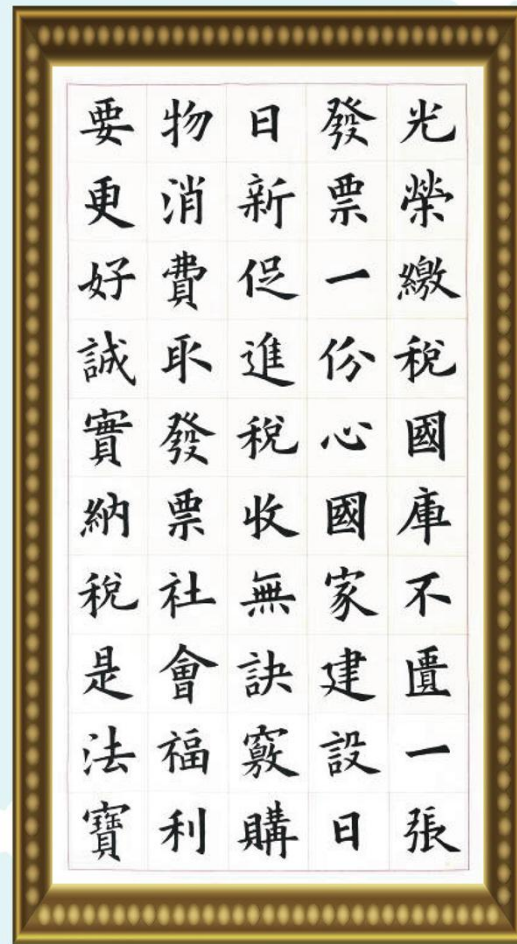 光榮繳稅國庫不匱一張
發票一份心國家建設日
日新促進稅收無訣竅購
物消費取發票社會福利
要更好誠實納稅是法寶